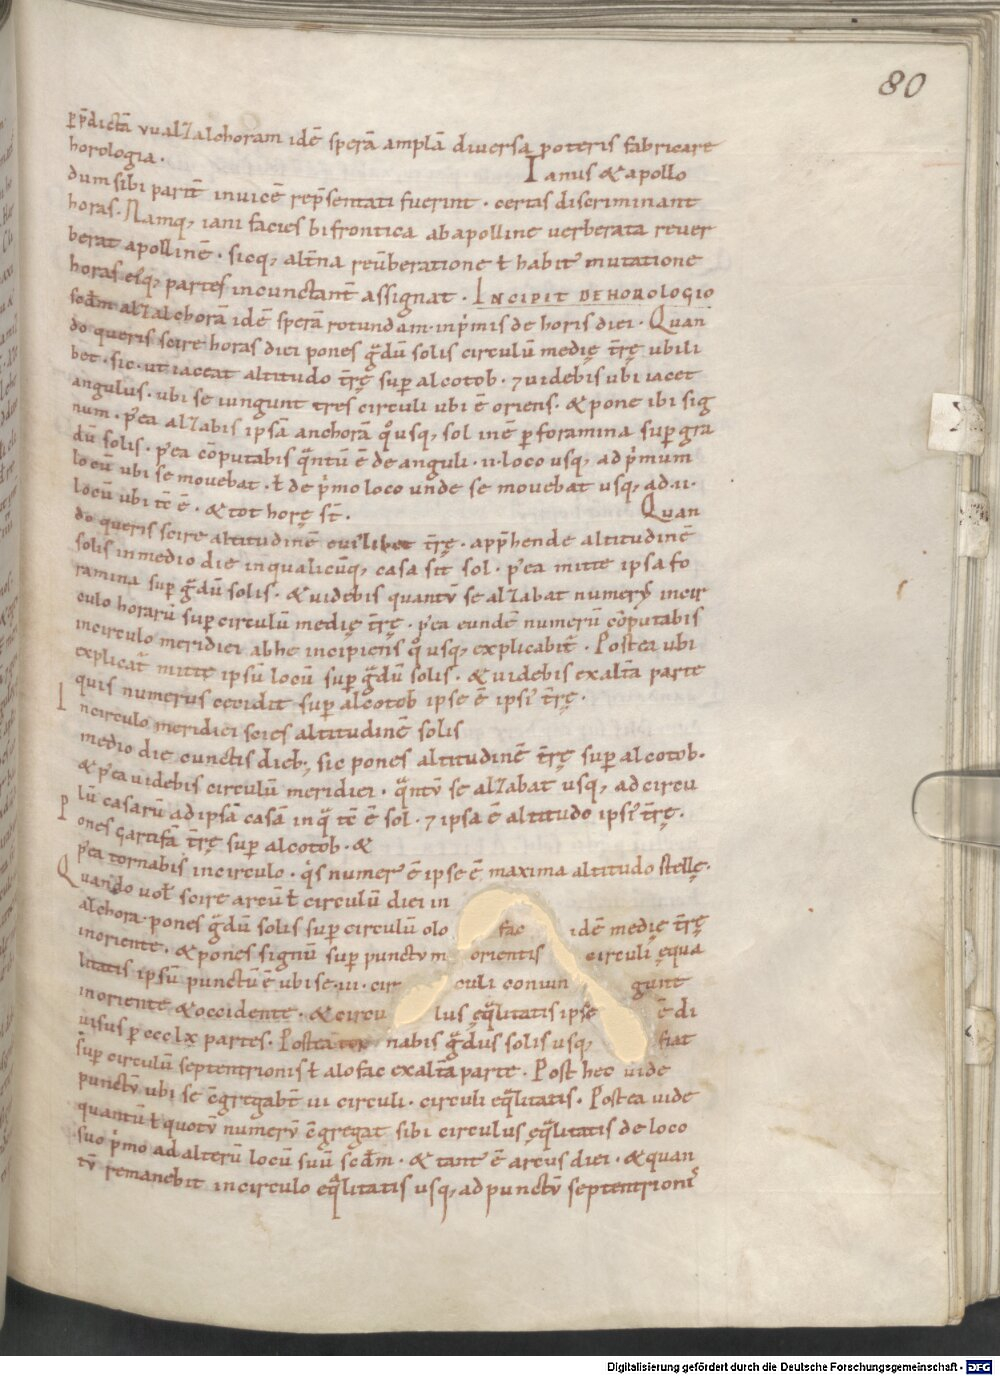 80
p̄ p̄dictā vualꝫalchoram idē sperā amplā diversa poteris fabricare
horologia. Ianus & apollo
dum sibi parit̄ invicē rep̄sentati fuerint. certas discriminant
horas. Namq; iani facies bifrontica ab apolline verberata rever
berat apollinē. sicq; alt̄na reūberatione ł habit᷒ mutatione
horas ei᷒q; partes incunctant̄ assignat. INCIPIT DE HOROLOGIO
scd̄m alꝫalchorā idē sperā rotundam. inp̄mis de horis diei. Quan
do queris scire horas diei pones g̃dū solis circulū medię t̄rę ubi li
bet. sic. ut iaceat altitudo t̄rę sup̄ alcotob. ⁊ uidebis ubi iacet
angulus. ubi se iungunt tres circuli ubi ē oriens. & pone ibi sig
num. p᷒ea alꝫabis ipsā anchorā q̊usq; sol in ē p̄ foramina sup̄ gra
dū solis. p᷒ea cōputabis q̃ntū ē de anguli .ii. loco usq; ad p̄mum
locū ubi se movebat. ł de p̄mo loco unde se movebat usq; ad .ii.
locū ubi tc̄ ē. & tot horę st̄. Quan
do queris scire altitudinē cui᷒libet t̄rę. app̄hende altitudinē
solis in medio die in qualicūq; casa sit sol. p᷒ea mitte ipsa fo
ramina sup̄ g̃dū solis. & uidebis quantū se alꝫabat numerꝰ in cir
culo horarū sup̄ circulū medię t̄rę. p᷒ea eundē numerū cōputabis
in circulo meridiei ab he incipiens q̊usq; explicabit̄. Postea ubi
explicat̄ mitte ipsū locū sup̄ g̃dū solis. & uidebis ex alt̄a parte
quis numerus cecidit sup̄ alcotob ipse ē ipsi᷒ t̄rę.
In circulo meridiei scies altitudinē solis
medio die cunctis dieb; sic pones altitudinē t̄rę sup̄ alcotob.
& p᷒ea uidebis circulū meridiei. q̃ntū se alꝫabat usq; ad circu
lū casarū ad ipsā casā in q̃ tc̄ ē sol. ⁊ ipsa ē altitudo ipsi᷒ t̄rę.
Pones çartifā t̄rę sup̄ alcotob. &
p᷒ea tornabis in circulo. q̇s numer᷒ ē ipse ē maxima altitudo stellę.
Quando uoł scire arcū ł circulū diei in
alchora. pones g̃dū solis sup̄ circulū olo fac idē medię t̄rę
in oriente. & pones signū sup̄ punctum orientis circuli equa
litatis ipsū punctū ē ubi se .iii. cir culi coniun gunt
in oriente & occidente. & circu lus eq̃litatis ipse ē di
uisus p̄ ccclx partes. Postea tor nabis g̃dus solis usq; fiat
sup̄ circulū septentrionis ł alofac ex alt̄a parte. Post hec uide
punctū ubi se c̄gregabt̄ iii circuli. circuli eq̃litatis. Postea uide
quantū ł quotū numerū c̄gregat sibi circulus eq̃litatis de loco
suo p̄mo ad alterū locū suū scd̄m. & tant᷒ ē arcus diei. & quan
tū remanebit in circulo eq̃litatis usq; ad punctū septentrioni᷒
Digitalisierung gefördert durch die Deutsche Forschungsgemeinschaft - DFG